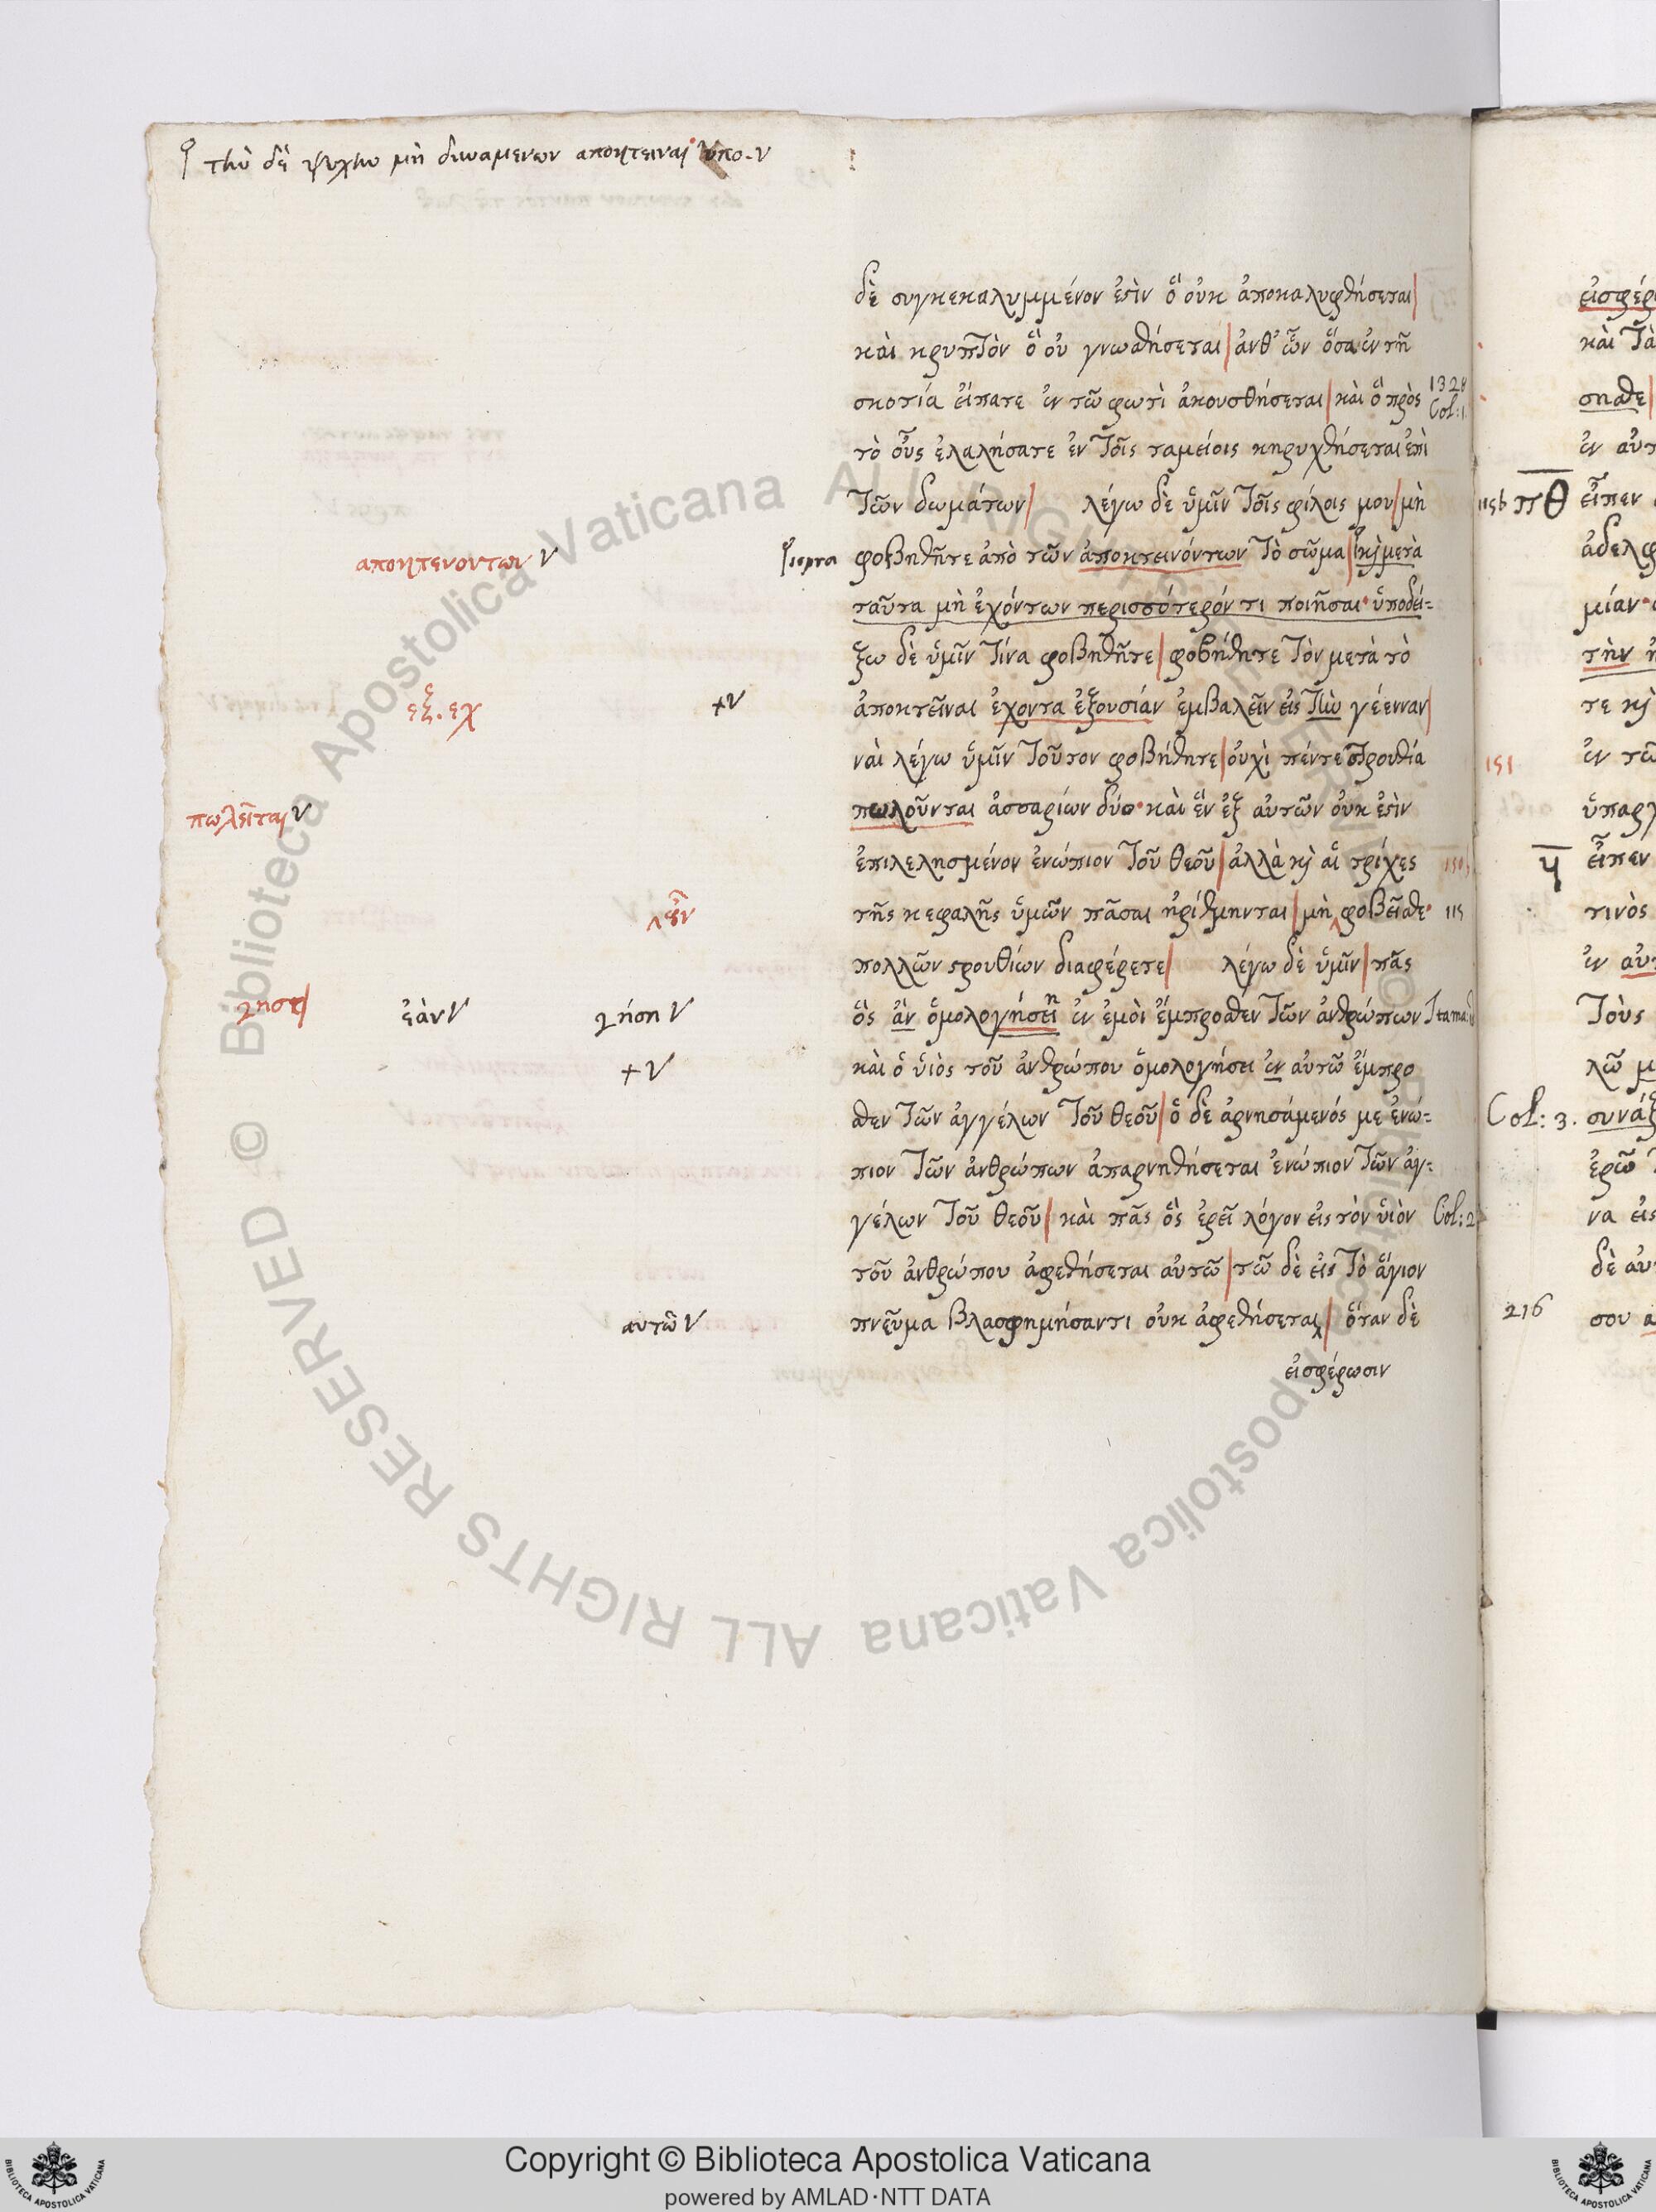 την δὲ ψυχην μὴ δυναμενων αποκτειναι υπο-ν
δὲ συγκεκαλυμμένον ἐστὶν ὃ οὐκ ἀποκαλυφθήσεται
καὶ κρυπτὸν ὃ οὐ γνωσθήσεται ἀνθ' ὧν ὅσα ἐν τῆ
σκοτία εἴπατε ἐν τῶ φωτὶ ἀκουσθήσεται καὶ ὃ πρὸς 1328 Col: 1
τὸ οὖς ἐλαλήσατε ἐν τοῖς ταμείοις κηρυχθήσεται ἐπὶ
τῶν δωμάτων λέγω δὲ ὑμῖν τοῖς φίλοις μου μὴ
αποκτενοντων ν sopra φοβηθῆτε ἀπὸ τῶν ἀποκτεινόντων τὸ σῶμα κὶ μετὰ
ταῦτα μὴ ἐχόντων περισσότερόν τι ποιῆσαι· ὑποδεί-
ξω δὲ ὑμῖν τίνα φοβηθῆτε φοβήθητε τὸν μετὰ τὸ
εξ. εχ +ν ἀποκτεῖναι ἔχοντα ἐξουσίαν ἐμβαλεῖν εἰς τὴν γέενναν
ναὶ λέγω ὑμῖν τοῦτον φοβήθητε οὐχὶ πέντε στρουθία
πωλεῖται ν πωλοῦνται ἀσσαρίων δύο· καὶ ἓν ἐξ αὐτῶν οὐκ ἐστὶν
ἐπιλελησμένον ἐνώπιον τοῦ θεοῦ ἀλλὰ κὶ αἱ τρίχες
τῆς κεφαλῆς ὑμῶν πᾶσαι ἠρίθμηνται μὴ φοβεῖσθε· 115
πολλῶν στρουθίων διαφέρετε λέγω δὲ ὑμῖν πᾶς
ἐὰν ν γήση ν ὃς ἂν ὁμολογήσει η ἐν ἐμοὶ ἔμπροσθεν τῶν ἀνθρώπων
+ν καὶ ὁ υἱὸς τοῦ ἀνθρώπου ὁμολογήσει ἐν αὐτῶ ἔμπρο
σθεν τῶν ἀγγέλων τοῦ θεοῦ ὁ δὲ ἀρνησάμενός με ἐνώ-
πιον τῶν ἀνθρώπων ἀπαρνηθήσεται ἐνώπιον τῶν ἀγ-
γέλων τοῦ θεοῦ καὶ πᾶς ὃς ἐρεῖ λόγον εἰς τὸν υἱὸν Col: 2
τοῦ ἀνθρώπου ἀφεθήσεται αὐτῶ τῶ δὲ εἰς τὸ ἅγιον
αυτῶ ν πνεῦμα βλασφημήσαντι οὐκ ἀφεθήσεται ὅταν δὲ
εἰσφέρωσιν
εἰσφέρ
καὶ τὰ
σησθε
ἐν αὐτ
115b πθ εἶπεν
ἀδελφ
μίαν·
τὴν
τε κὶ
151 ἐν τῶ
ὑπαρχ
ϟ εἶπεν
τινὸς
ἐν αὐτ
τοὺς
λῶ μ
Col: 3. συνάξ
ἐρῶ
να εἰς
δὲ αὐτ
216 σου α
© Biblioteca Apostolica Vaticana ALL RIGHTS RESERVED
Copyright © Biblioteca Apostolica Vaticana
powered by AMLAD·NTT DATA
BIBLIOTECA APOSTOLICA VATICANA
BIBLIOTECA APOSTOLICA VATICANA